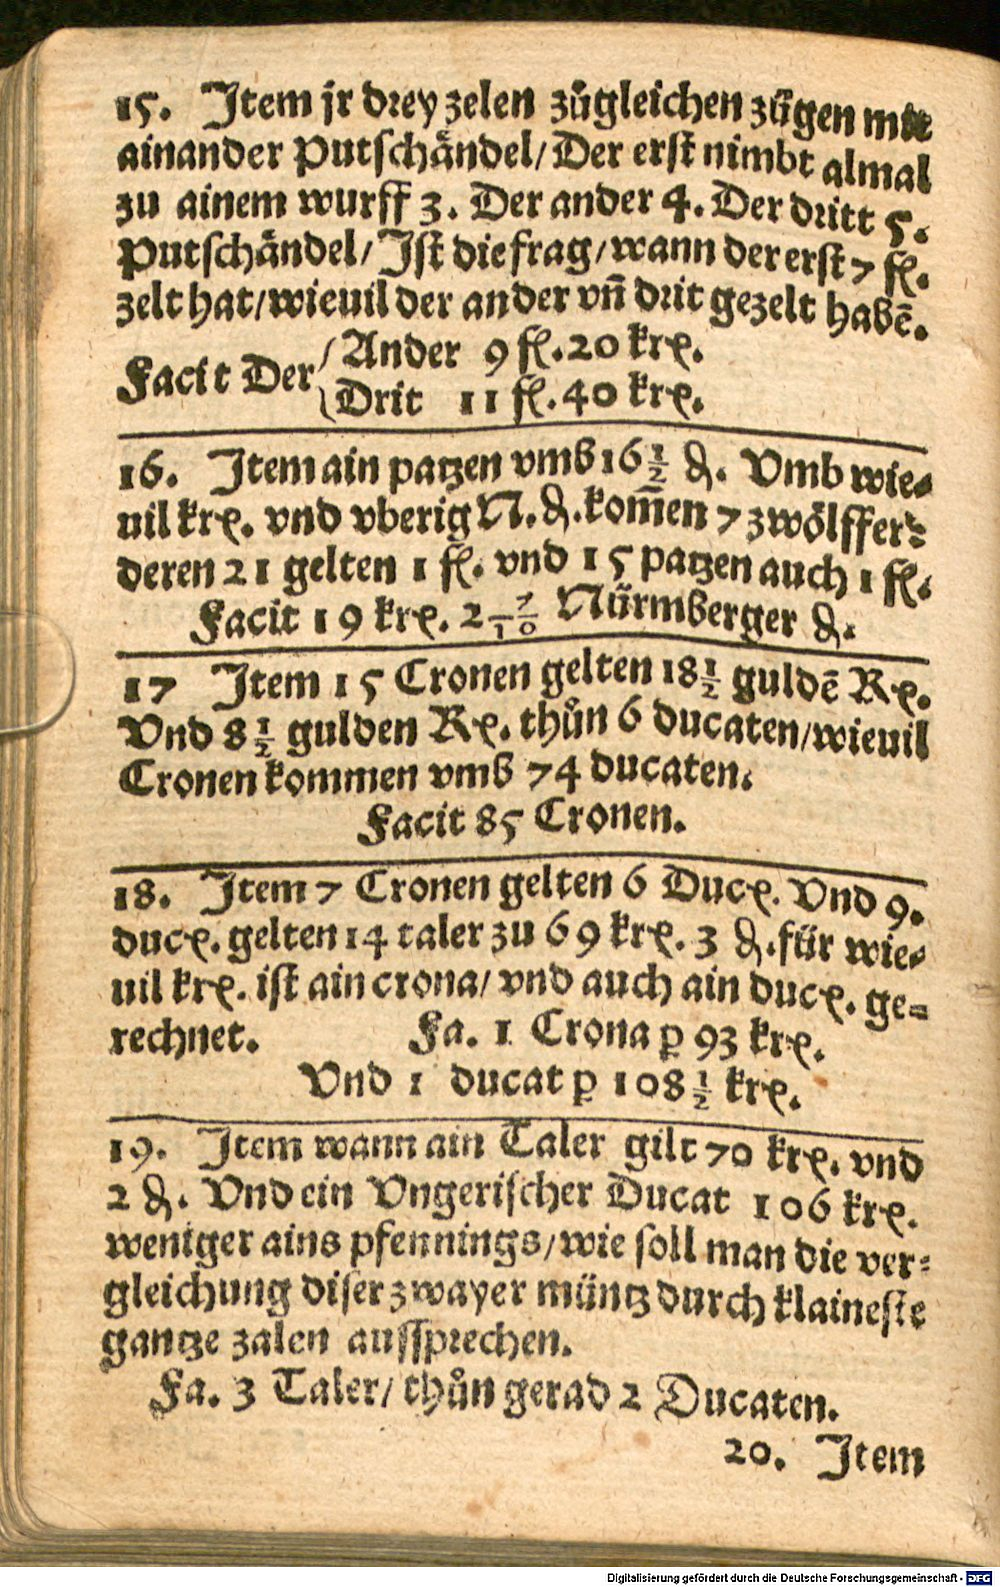 15. Item jr drey zelen zůgleichen zügen mit
ainander Putschändel/ Der erst nimbt almal
zu ainem wurff 3. Der ander 4. Der dritt 5.
Putschändel/ Ist die frag/ wann der erst 7 fl.
zelt hat/ wieuil der ander vñ drit gezelt habē.
Facit Der ( Ander 9 fl. 20 krꝭ.
Drit 11 fl. 40 krꝭ.
16. Item ain patzen vmb 16 1/2 ₰. Vmb wie⸗
uil krꝭ. vnd vberig N. ₰. kom̄en 7 zwölffer⸗
deren 21 gelten 1 fl. vnd 15 patzen auch 1 fl.
Facit 19 krꝭ. 2 7/10 Nürmberger ₰.
17 Item 15 Cronen gelten 18 1/2 guldē Rꝭ.
Vnd 8 1/2 gulden Rꝭ. thůn 6 ducaten/ wieuil
Cronen kommen vmb 74 ducaten.
Facit 85 Cronen.
18. Item 7 Cronen gelten 6 Ducꝭ. Vnd 9.
ducꝭ. gelten 14 taler zu 69 krꝭ. 3 ₰. für wie⸗
uil krꝭ. ist ain crona/ vnd auch ain ducꝭ. ge⸗
rechnet. Fa. 1 Crona ꝑ 93 krꝭ.
Vnd 1 ducat ꝑ 108 1/2 krꝭ.
19. Item wann ain Taler gilt 70 krꝭ. vnd
2 ₰. Vnd ein Vngerischer Ducat 106 krꝭ.
weniger ains pfennings/ wie soll man die ver⸗
gleichung diser zwayer müntz durch klaineste
gantze zalen aussprechen.
Fa. 3 Taler/ thůn gerad 2 Ducaten.
20. Item
Digitalisierung gefördert durch die Deutsche Forschungsgemeinschaft - DFG